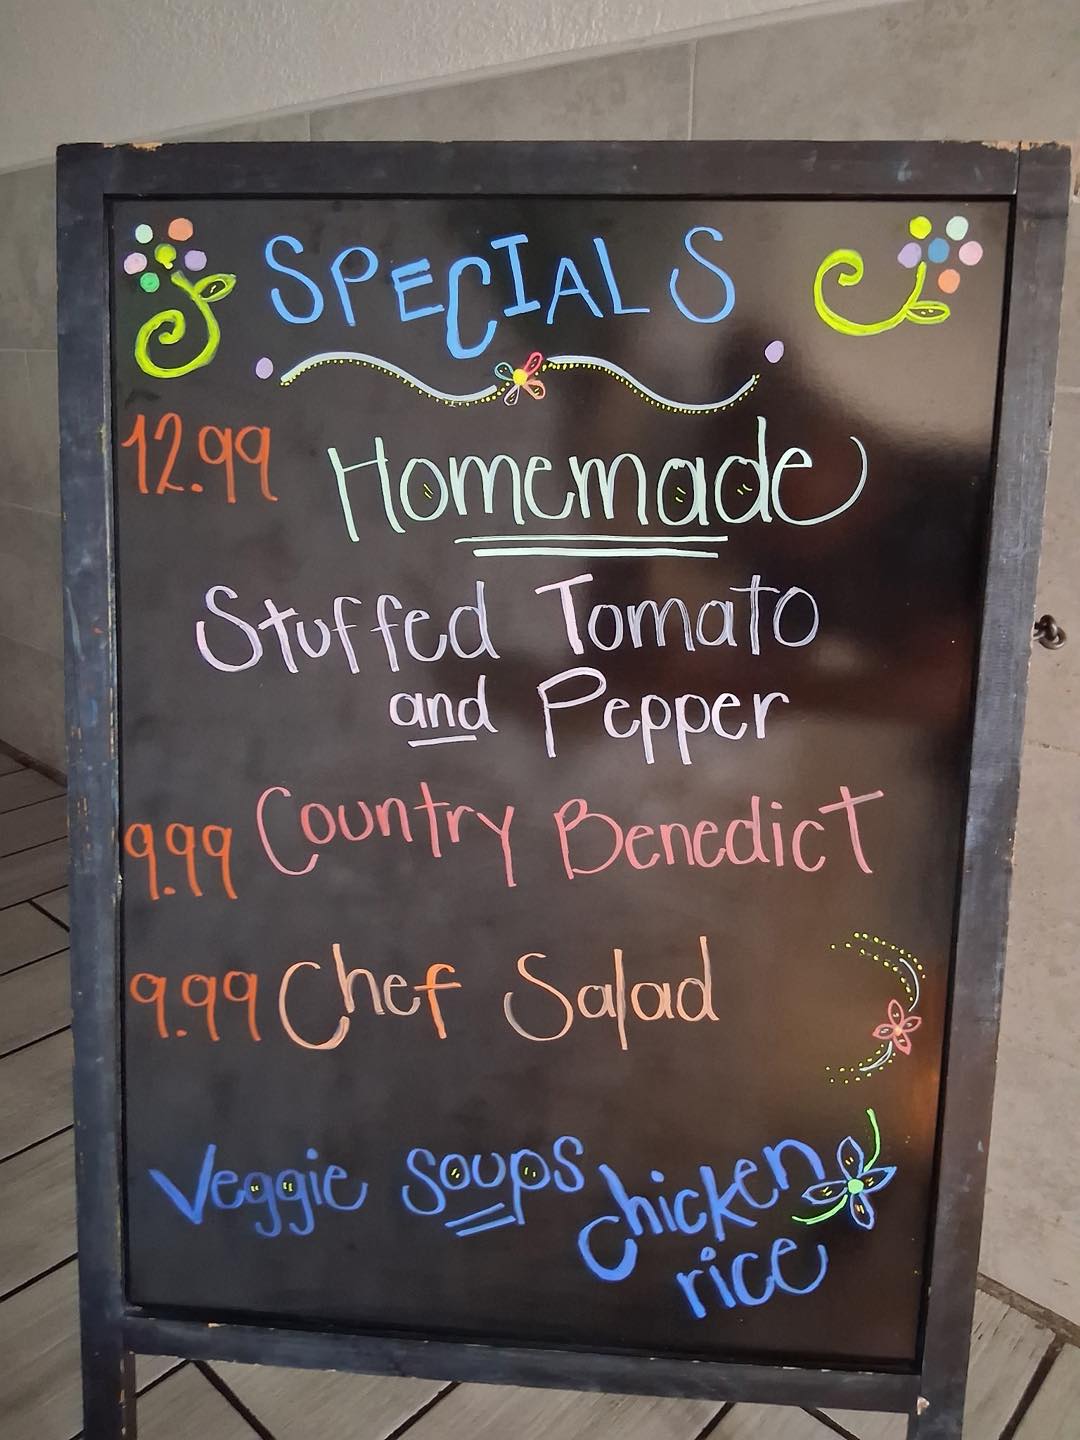 SPECIALS
12.99 Homemade
Stuffed Tomato
and Pepper
9.99 Country Benedict
9.99 Chef Salad
Veggie Soups Chicken
rice